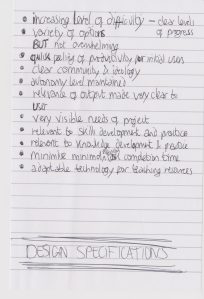 • increasing level of difficulty – clear levels of progress
• variety of options
BUT not overwhelming
• quick feeling of productivity for initial users
• clear community & ideology
• autonomy level maintained
• relevance of output made very clear to user
• very visible needs of project
• relevant to skills development and practice
• relevant to knowledge development & practice
• minimise minimum completion time
• adaptable technology for teaching resources
DESIGN SPECIFICATIONS